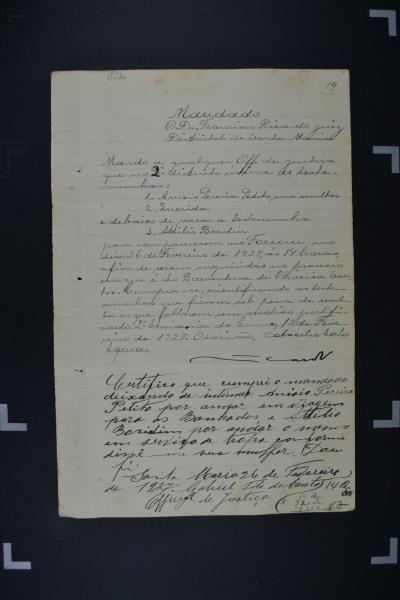 19
Mandado
O Dr. Francisco Ricardo, juiz
Districtal de Santa Maria
Mando a qualquer Off. de justiça
que no 2º districto intime as teste-
munhas:
1. Anisio Pereira Petito, sua mulher
2. Querida
e debaixo de vara a testemunha
3. Attilio Bordin
para comparecerem no Forum no
dia 26 de Fevereiro de 1927, ás 14 horas,
afim de serem inquiridos no processo
em que é réo de Oliveira San-
tos. Cumpra-se, scientificando as teste-
munhas que ficam sob pena de mul-
ta os que faltarem sem motivo justifi-
cado. 12 de Feve-
reiro de 1927. O escrivão,
Certifico que cumpri o mandado
deixando de intimar Anisio Pereira
Petito por andar em viagem
para os Banhados e Attilio
Boridim por andar o mesmo
em serviço de conforme
disse-me sua mulher. Dou
fé
Santa Maria 26 de Fevereiro
de 1927. Gabriel dos Santos
Official de Justiça